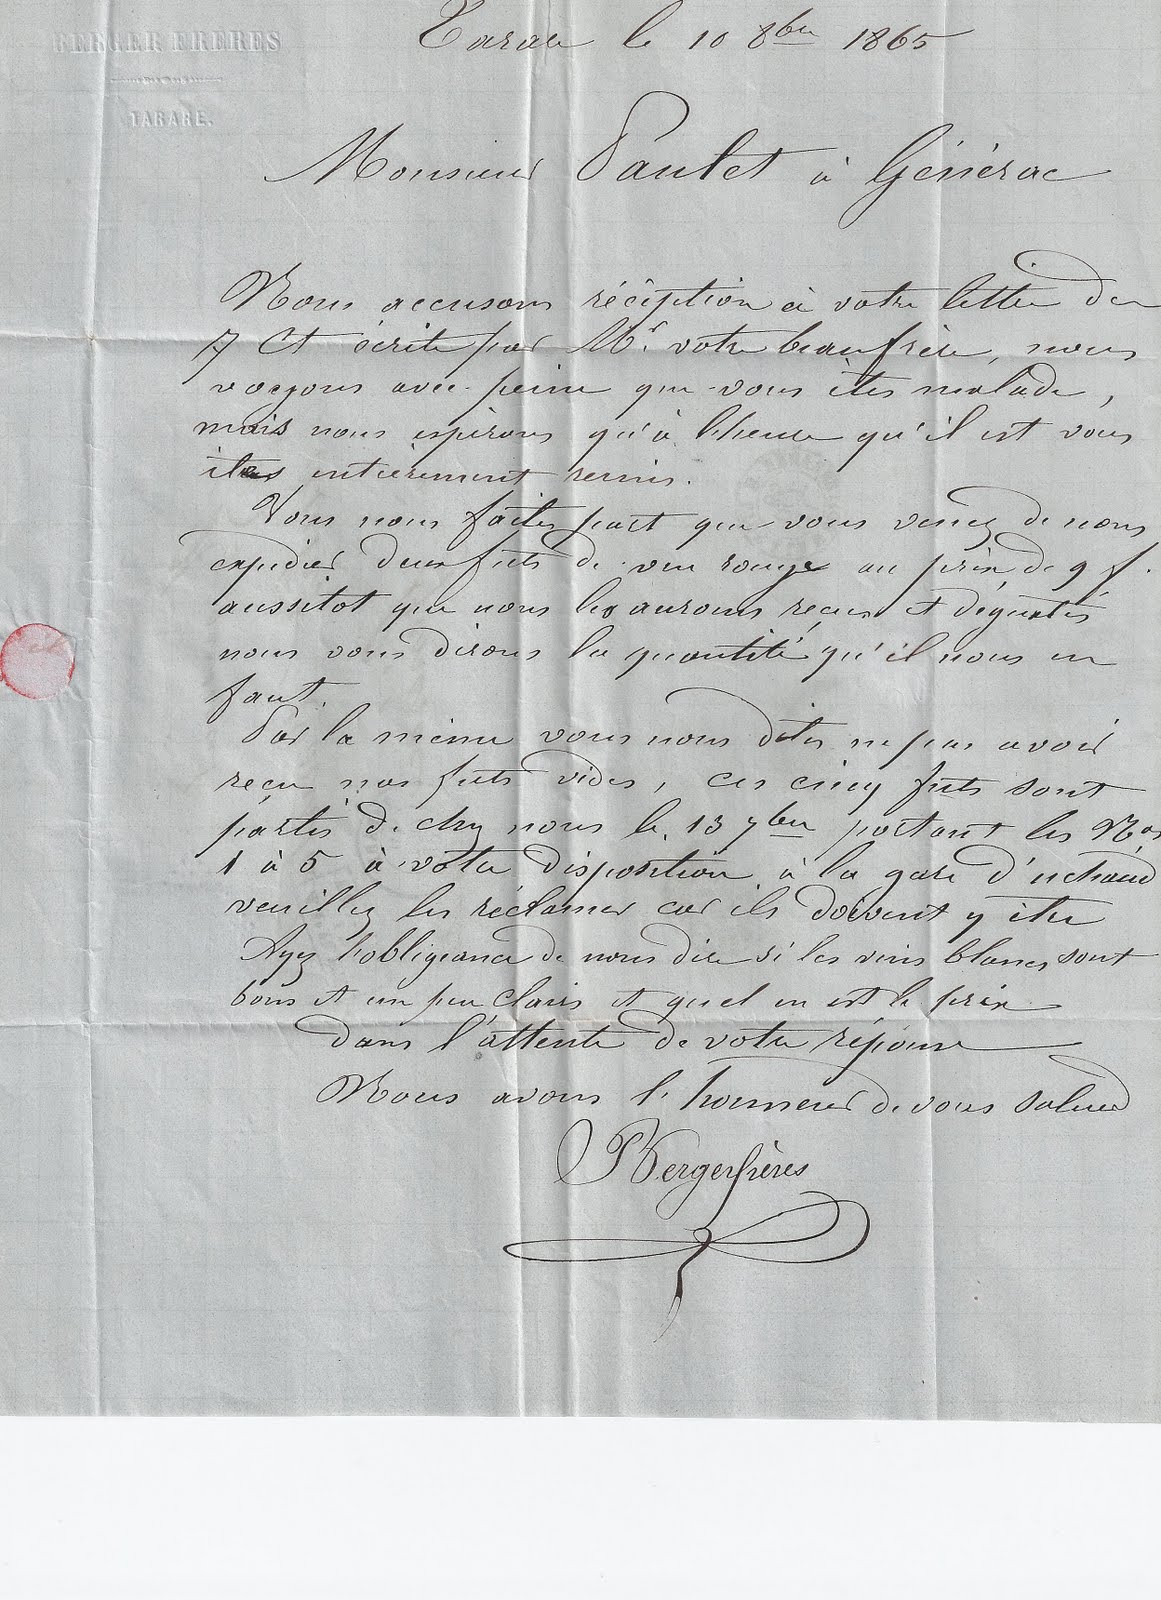 BERGER FRERES
TARARE.
Tarare le 10 8bre 1865
Monsieur Paulet à Générac
Nous accusons réception à votre lettre du
7 Ct écrite par Mr. votre beau frère, nous
voyons avec peine que vous êtes malade,
mais nous espérons qu'à l'heure qu'il est vous
êtes entièrement remis.
Vous nous faites part que vous venez de nous
expédier deux futs de vin rouge au prix de 9 f.
aussitot que nous les aurons reçus et dégustés
nous vous dirons la quantité qu'il nous en
faut.
Par la même vous nous dites ne pas avoir
reçu nos futs vides, ces cinq futs sont
partis de chez nous le 13 7bre portant les Nos
1 à 5 à votre disposition à la gare d'uchaud
veuillez les réclamer car ils doivent y être
Ayez l'obligeance de nous dire si les vins blancs sont
bons et un peu clairs et quel en est le prix
dans l'attente de votre réponse
Nous avons l'honneur de vous saluer
Berger frères